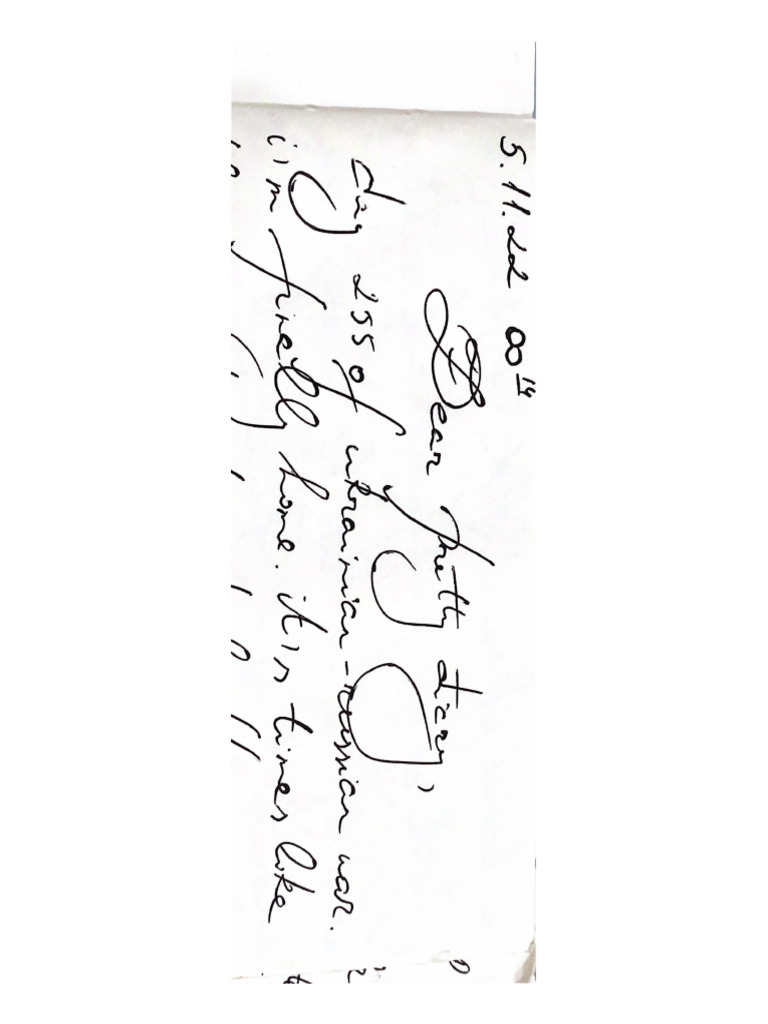 5.11.22 00¹⁴
Dear pretty diary,
day 255 of ukrainian-russian war.
i'm finally home. it's times like